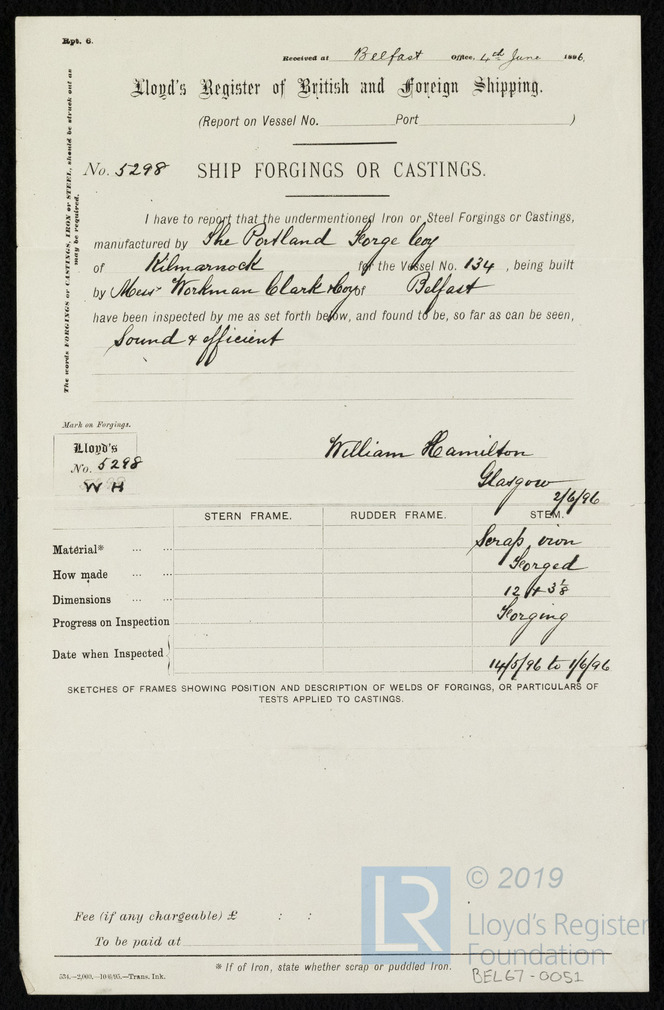 Rpt. 6.
Received at Belfast Office, 4th June 1896.
Lloyd's Register of British and Foreign Shipping.
(Report on Vessel No. Port )
No. 5298 SHIP FORGINGS OR CASTINGS.
The words FORGINGS or CASTINGS, IRON or STEEL, should be struck out as
may be required.
I have to report that the undermentioned Iron or Steel Forgings or Castings,
manufactured by The Portland Forge Coy
of Kilmarnock for the Vessel No. 134 , being built
by Mess Workman Clark & Coy of Belfast
have been inspected by me as set forth below, and found to be, so far as can be seen,
Sound & efficient
Mark on Forgings.
Lloyd's
No. 5298
W H
William Hamilton
Glasgow
2/6/96
STERN FRAME. RUDDER FRAME. STEM.
Material* ... ... Scrap iron
How made ... ... Forged
Dimensions ... ... 12 x 3 1/8
Progress on Inspection Forging
Date when Inspected 14/5/96 to 1/6/96
SKETCHES OF FRAMES SHOWING POSITION AND DESCRIPTION OF WELDS OF FORGINGS, OR PARTICULARS OF
TESTS APPLIED TO CASTINGS.
Fee (if any chargeable) £ : :
To be paid at
* If of Iron, state whether scrap or puddled Iron.
534.—2,000.—10/4/95.—Trans. Ink.
LR
© 2019
Lloyd's Register
Foundation
BEL67-0051